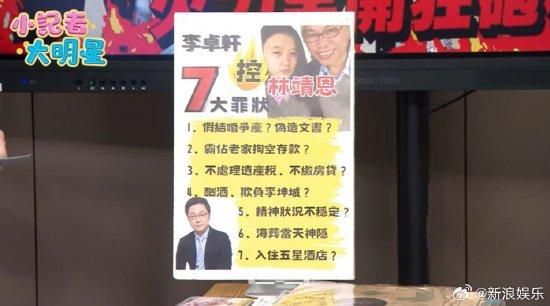 小記者
大明星
李卓軒
控
林靖恩
7大罪狀
1、假結婚爭產？偽造文書？
2、霸佔老家掏空存款？
3、不處理遺產稅、不繳房貸？
4、酗酒、欺負李坤城？
5、精神狀況不穩定？
6、海葬當天神隱
7、入住五星酒店？
@新浪娱乐